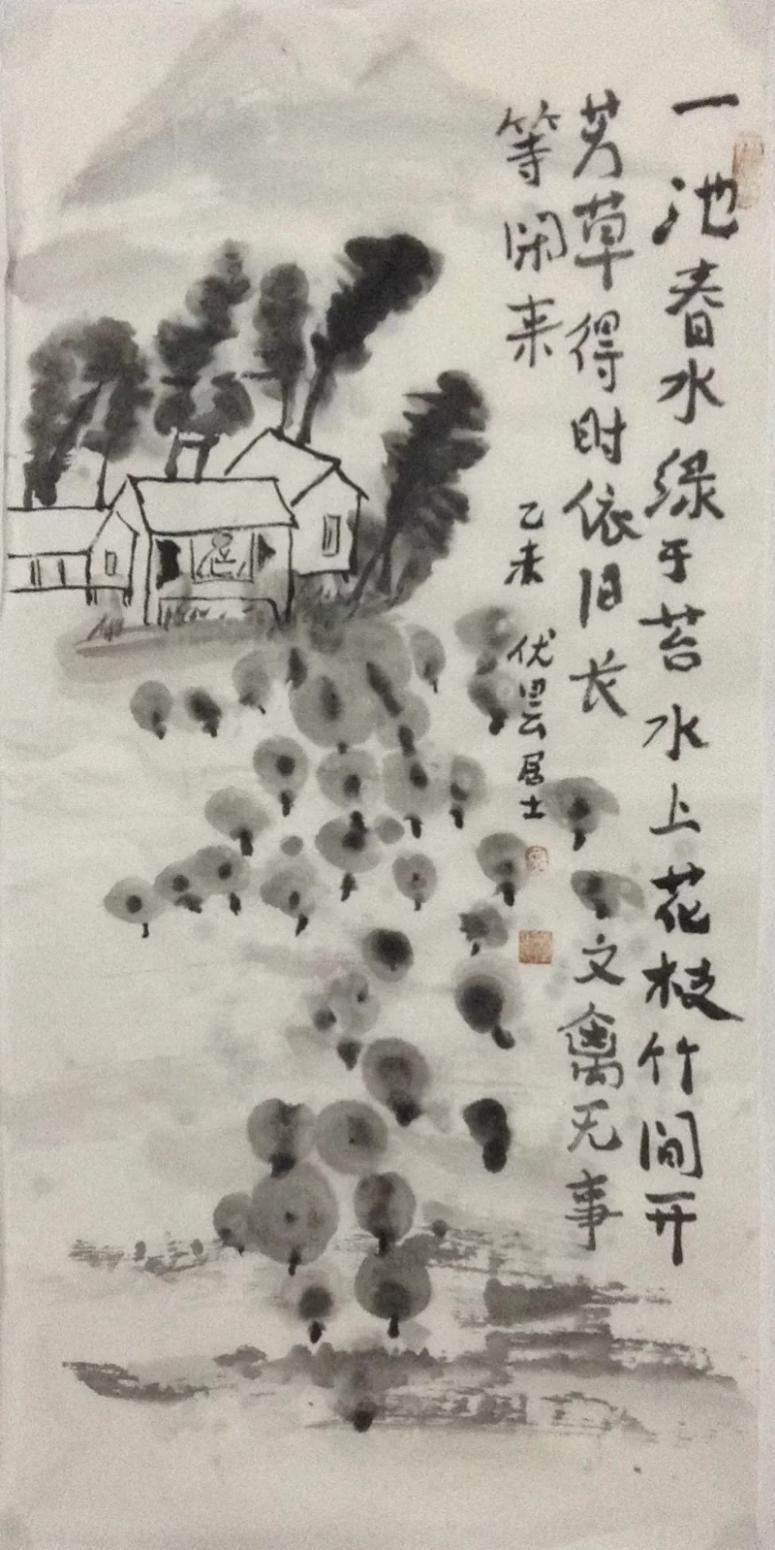 一池春水绿于苔水上花枝竹间开
芳草得时依旧长文禽无事
等闲来
乙未 伏昙居士